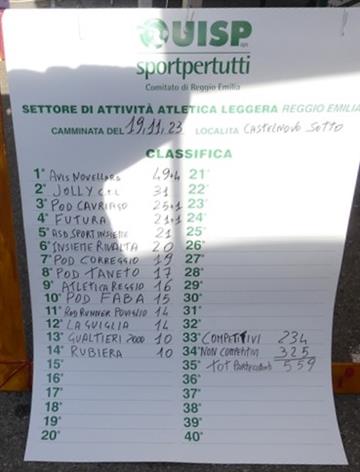 UISP aps
sportpertutti
Comitato di Reggio Emilia
SETTORE DI ATTIVITÀ ATLETICA LEGGERA REGGIO EMILIA
CAMMINATA DEL 19,11,23 LOCALITÀ CASTELNOVO SOTTO
CLASSIFICA
1° AVIS NOVELLARA 49+4 21°
2° JOLLY C.T.L 31 22°
3° POD CAVRIAGO 25+1 23°
4° FUTURA 21+1 24°
5° ASD SPORT INSIEME 21 25°
6° INSIEME RIVALTA 20 26°
7° POD CORREGGIO 19 27°
8° POD TANETO 17 28°
9° ATLETICA REGGIO 16 29°
10° POD FABA 15 30°
11° ROD RUNNER POVIGLIO 14 31°
12° LA GUGLIA 14 32°
13° GUALTIERI 2000 10 33° COMPETITIVI 234
14° RUBIERA 10 34° NON COMPETITIVI 325
15° 35° TOT PARTECIPANTI 559
16° 36°
17° 37°
18° 38°
19° 39°
20° 40°